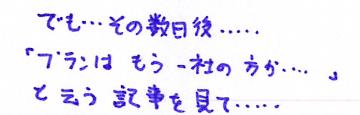 でも…その数日後.....
「プランは もう 一社の 方が....」
と云う 記事を見て.....